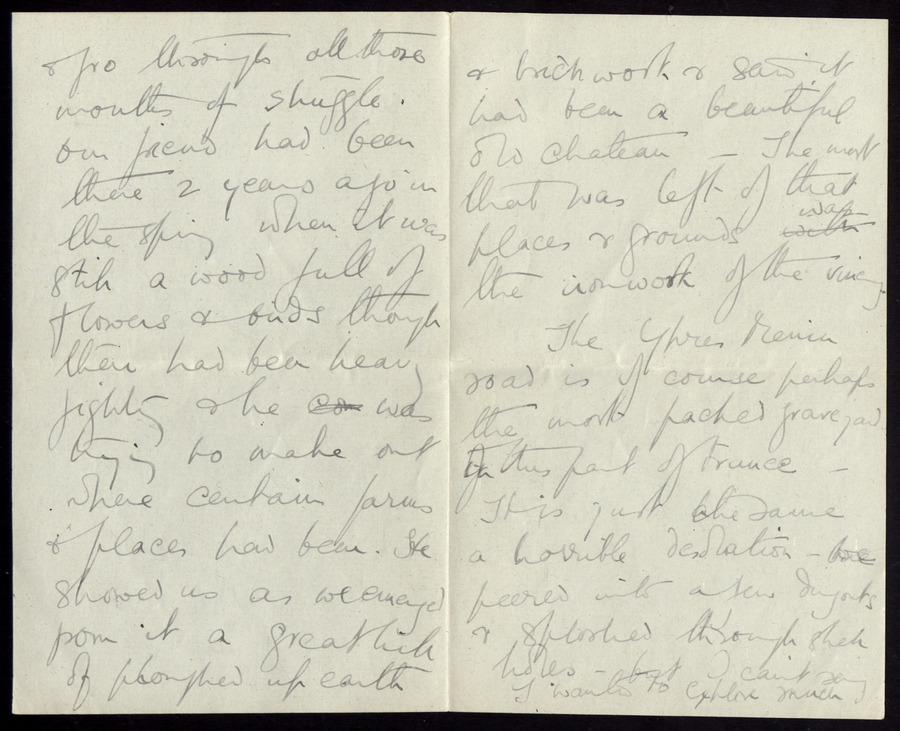 & fro through all those
months of struggle.
Our friend had been
there 2 years ago in
the spring when it was
still a wood full of
flowers & birds though
there had been heavy
fighting & he was
trying to make out
where certain farms
& places had been. He
showed us as we emerged
from it a great hill
of ploughed up earth
& brickwork & said it
had been a beautiful
old chateau – The most
that was left of that
places & grounds was
the ironwork of the
The Ypres Menin
road is of course perhaps
the most packed graveyard
in this part of France –
It is just the same
a horrible desolation – we
peered into a few dugouts
& sploshed through shell
holes – but I can't say
I wanted to explore much.